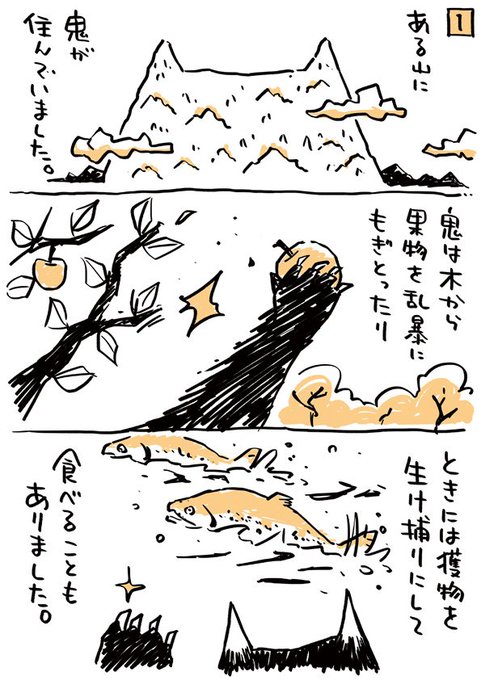 1
ある山に
鬼が
住んでいました。
鬼は木から
果物を乱暴に
もぎとったり
ときには獲物を
生け捕りにして
食べることも
ありました。